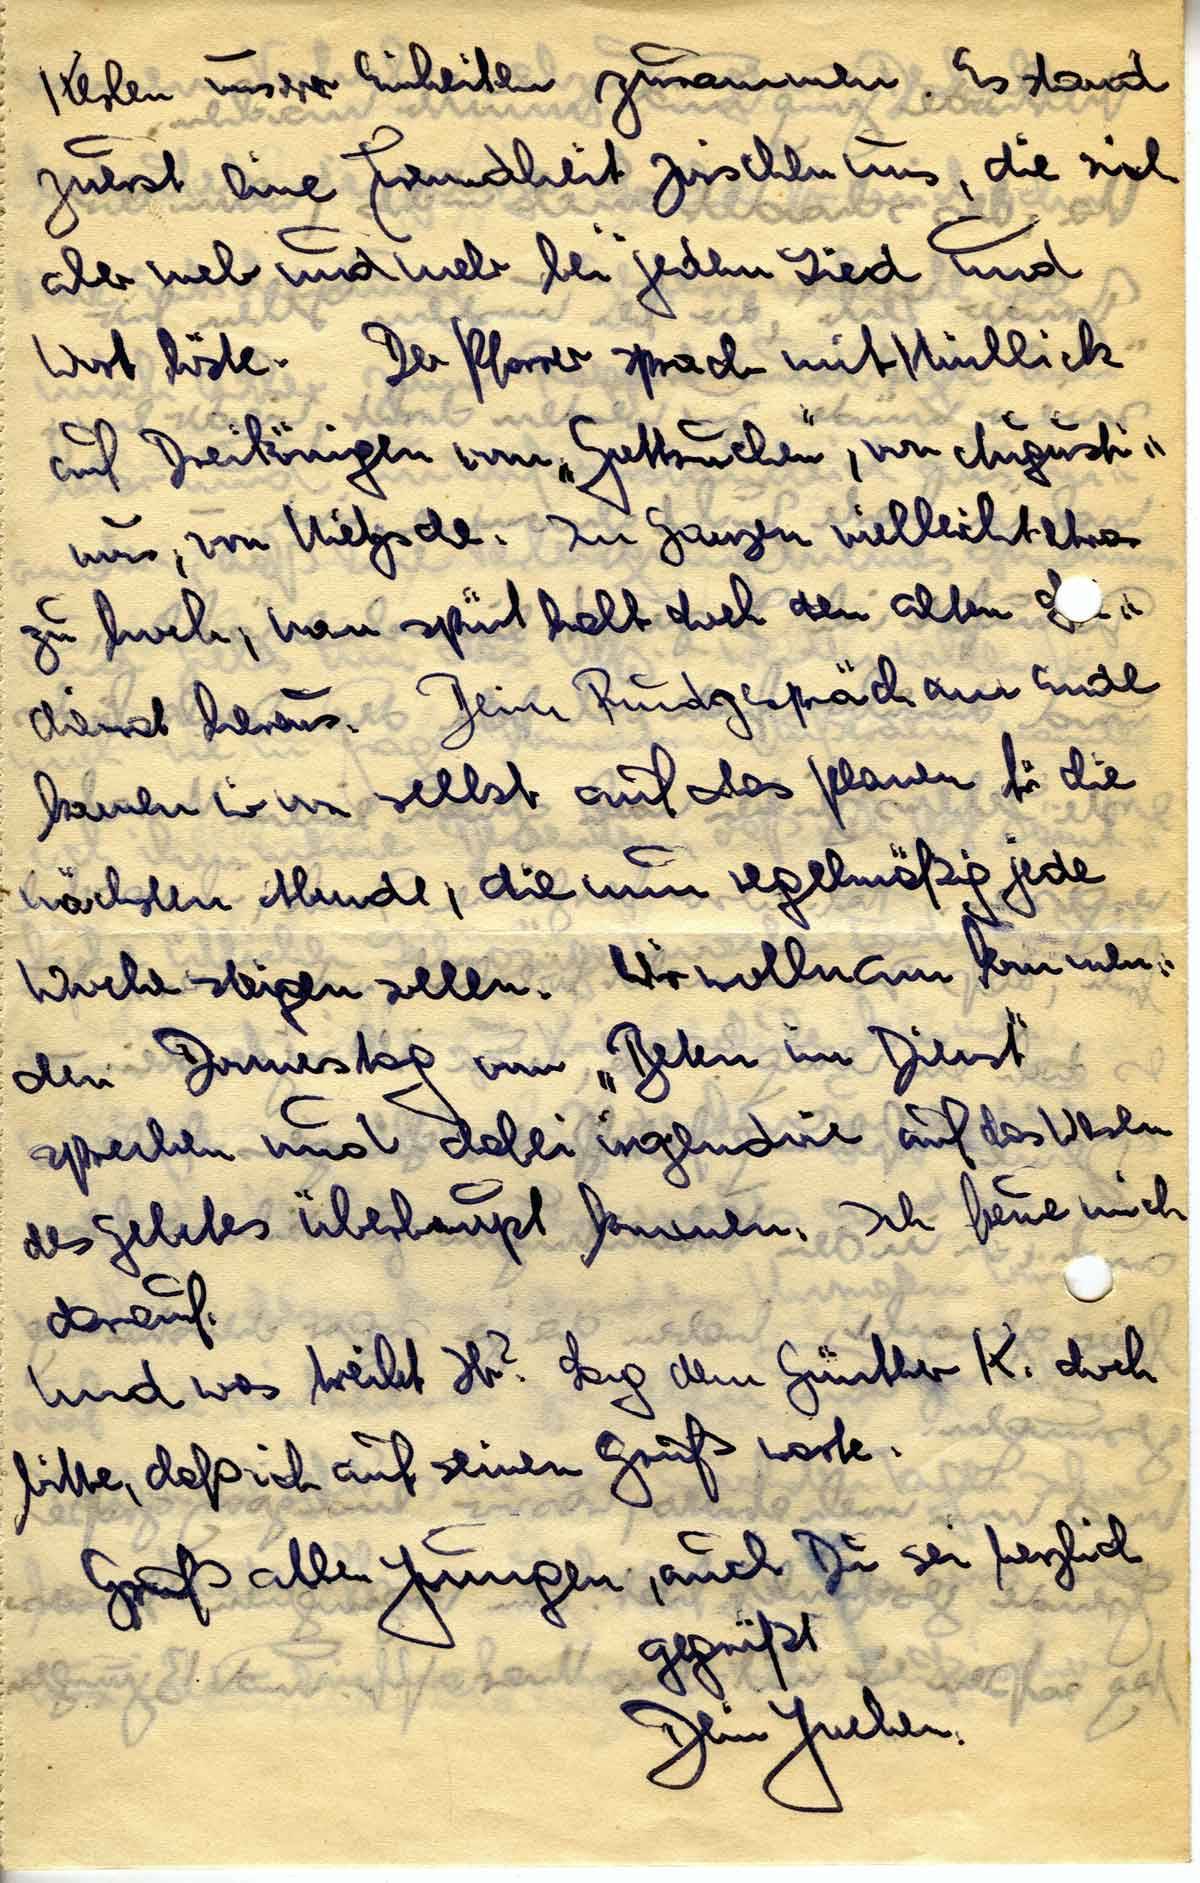 Kesten unserer Einheiten zusammen. Es stand
zuerst eine Fremdheit zwischen uns, die sich
aber mehr und mehr bei jedem Lied und
Wort löste. Der Pfarrer sprach mit Hinblick
auf Dreikönigen vom „Gottsuchen“, von Augusti-
nus, von Nietzsche. Im Ganzen vielleicht etwas
zu hoch, man spürt halt doch den alten
dienst heraus. Beim Rundgespräch am Ende
kamen wir von selbst auf das Planen für die
nächsten Abende, die nun regelmäßig jede
Woche steigen sollen. Wir wollen am kommen-
den Donnerstag vom „Beten im Dienst“
sprechen und dabei irgendwie auf das Wesen
des Gebetes überhaupt kommen. Ich freue mich
darauf.
Und was treibt Ihr? Sag dem Günther K. doch
bitte, daß ich auf seinen Gruß warte.
Grüß alle Jungen, auch Du sei herzlich
gegrüßt
Dein Jochen.